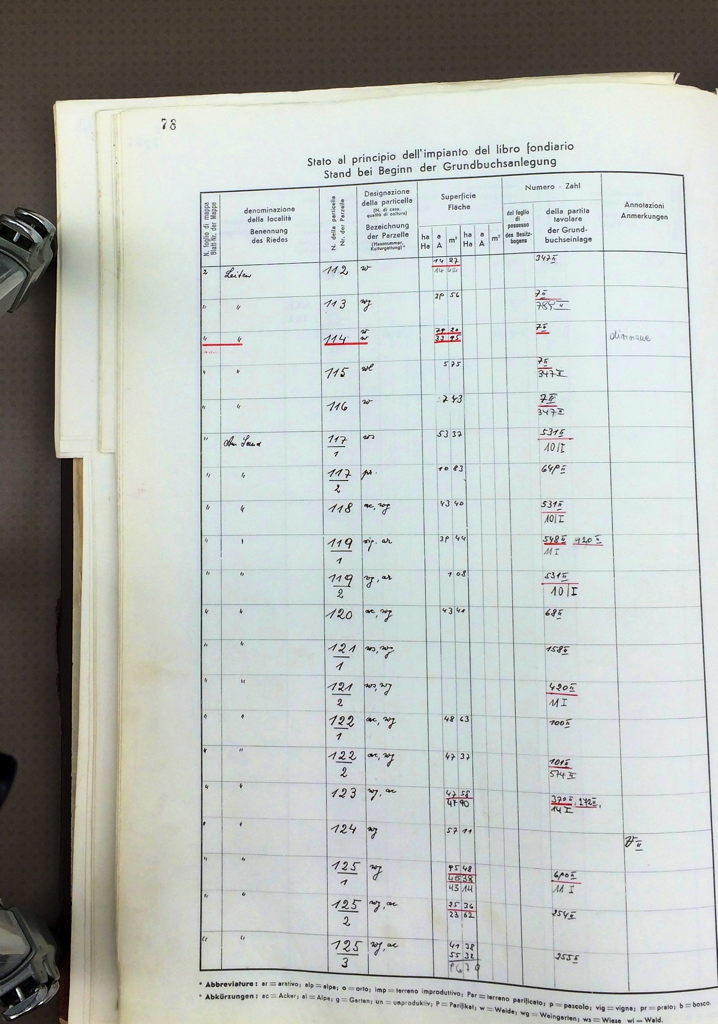 78
Stato al principio dell'impianto del libro fondiario
Stand bei Beginn der Grundbuchsanlegung
N. foglio di mappa
Blatt-Nr. der Mappe
denominazione
della località
Benennung
des Riedes
N. della particella
Nr. der Parzelle
Designazione
della particella
(N. di casa, qualità di coltura)
Bezeichnung
der Parzelle
(Hausnummer, Kulturgattung)*
Superficie
Fläche
ha a m² ha a m²
Ha A Ha A
Numero - Zahl
del foglio di possesso
des Besitzbogens
della partita
tavolare
der Grund-
buchseinlage
Annotazioni
Anmerkungen
2 Leiten 112 w 14 27 347 II
" " 113 wg 56 7 II
" " 114 w 7 II
33 95
" " 115 wl 5 75 7 II
347 I
" " 116 w 2 43 7 II
347 I
" 117/1 ws 53 37 531 II
10/I
" " 117/2 pr. 10 83 649 II
" " 118 ac, wg 43 40 531 II
10/I
" " 119/1 vig. ar 39 44 548 II 420 II
11 I
" " 119/2 vg, ar 1 08 531 II
10/I
" " 120 ac, wg 43 41 68 II
" " 121/1 ws, wg 158 II
" " 121/2 ws, wg 420 II
11 I
" " 122/1 ac, wg 48 63 100 II
" " 122/2 ac, wg 47 37 101 II
574 II
" " 123 wg, ac 47 58 370 II, 272 II,
47 90 14 I
" " 124 wg 57 11
" " 125/1 wg 95 48 690 II
45 38 11 I
43 14
" " 125/2 wg, ac 25 36 254 II
23 62
" " 125/3 wg, ac 41 38 255 II
55 32
* Abbreviature: ar = arativo; alp = alpe; o = orto; imp = terreno improduttivo; Par = terreno parificato; p = pascolo; vig = vigna; pr = prato; b = bosco.
* Abkürzungen: ac = Acker; al = Alpe; g = Garten; un = unproduktiv; P = Parifikat; w = Weide; wg = Weingarten; ws = Wiese wl = Wald.